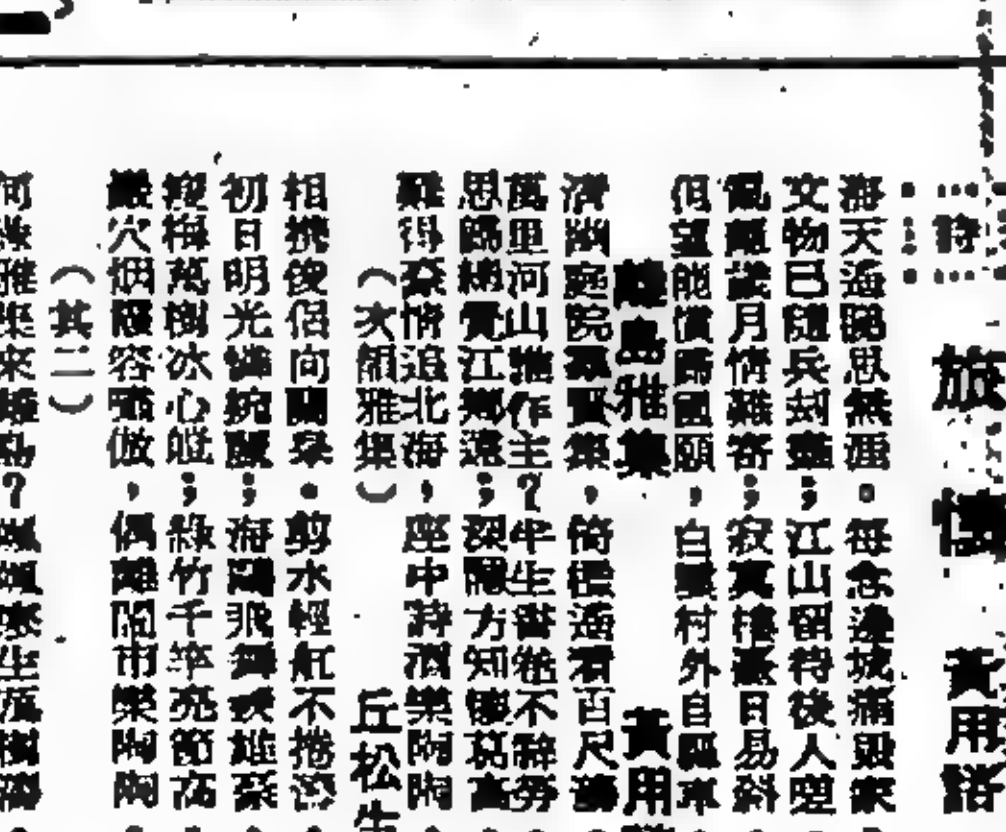 詩
旅懷 黃用諮
海天遙隔思無涯。每念邊城痛毀家
文物已隨兵封；江山留待後人
亂離歲月情難寄；寂寞樓臺日易斜
但望能償歸國願，白雲村外自驅車
離島雅集 黃用
清幽庭院尋賢集，倚檻遙看百尺濤
萬里河山誰作主？半生書卷不辭勞
思歸總覺江鄉遠；深隱方知懷葛高
難得豪情追北海，座中詩酒樂陶陶
（次韻雅集） 丘松生
相攜俊侶向蘭皋。剪水輕航不捲濤
初日明光；海鷗飛舞雄豪
瘦梅萬樹冰心；綠竹千竿亮節高
巖穴烟霞容，偶離鬧市樂陶陶
（其二）
何 雅集來離島？寒生